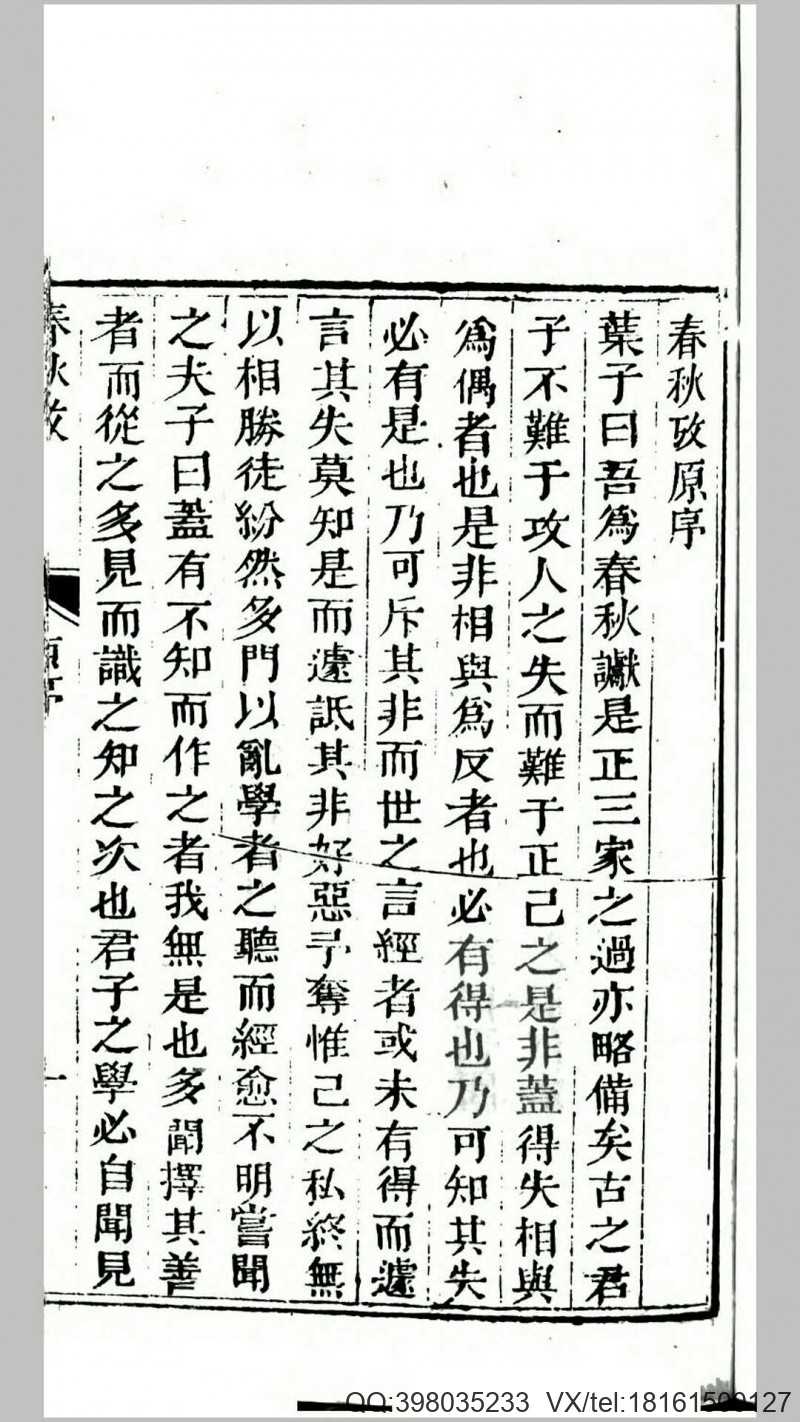 春秋攷原序
葉子曰吾為春秋讞是正三家之過亦略備矣古之君
子不難于攻人之失而難于正己之是非蓋得失相與
為偶者也是非相與為反者也必有得也乃可知其失
必有是也乃可斥其非而世之言經者或未有得而遽
言其失莫知是而遽詆其非好惡予奪惟己之私終無
以相勝徒紛然多門以亂學者之聽而經愈不明嘗聞
之夫子曰蓋有不知而作之者我無是也多聞擇其善
者而從之多見而識之知之次也君子之學必自聞見
春秋攷
原序
一
QQ:398035233 VX/tel:18161500127